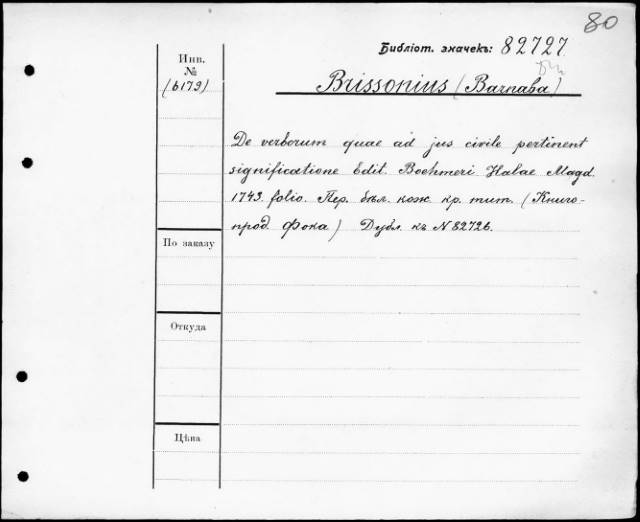 80
Библіот. значекъ: 82727
Инв.
№
(6179)
Brissonius (Barnaba)
De verborum quae ad jus civile pertinent
significatione Edit. Boehmeri. Halae Magd.
1743. folio. Пер. бѣл. кож. кр. тит. (Книго-
прод. Фока) Дубл. къ N 82726.
По заказу
Откуда
Цѣна